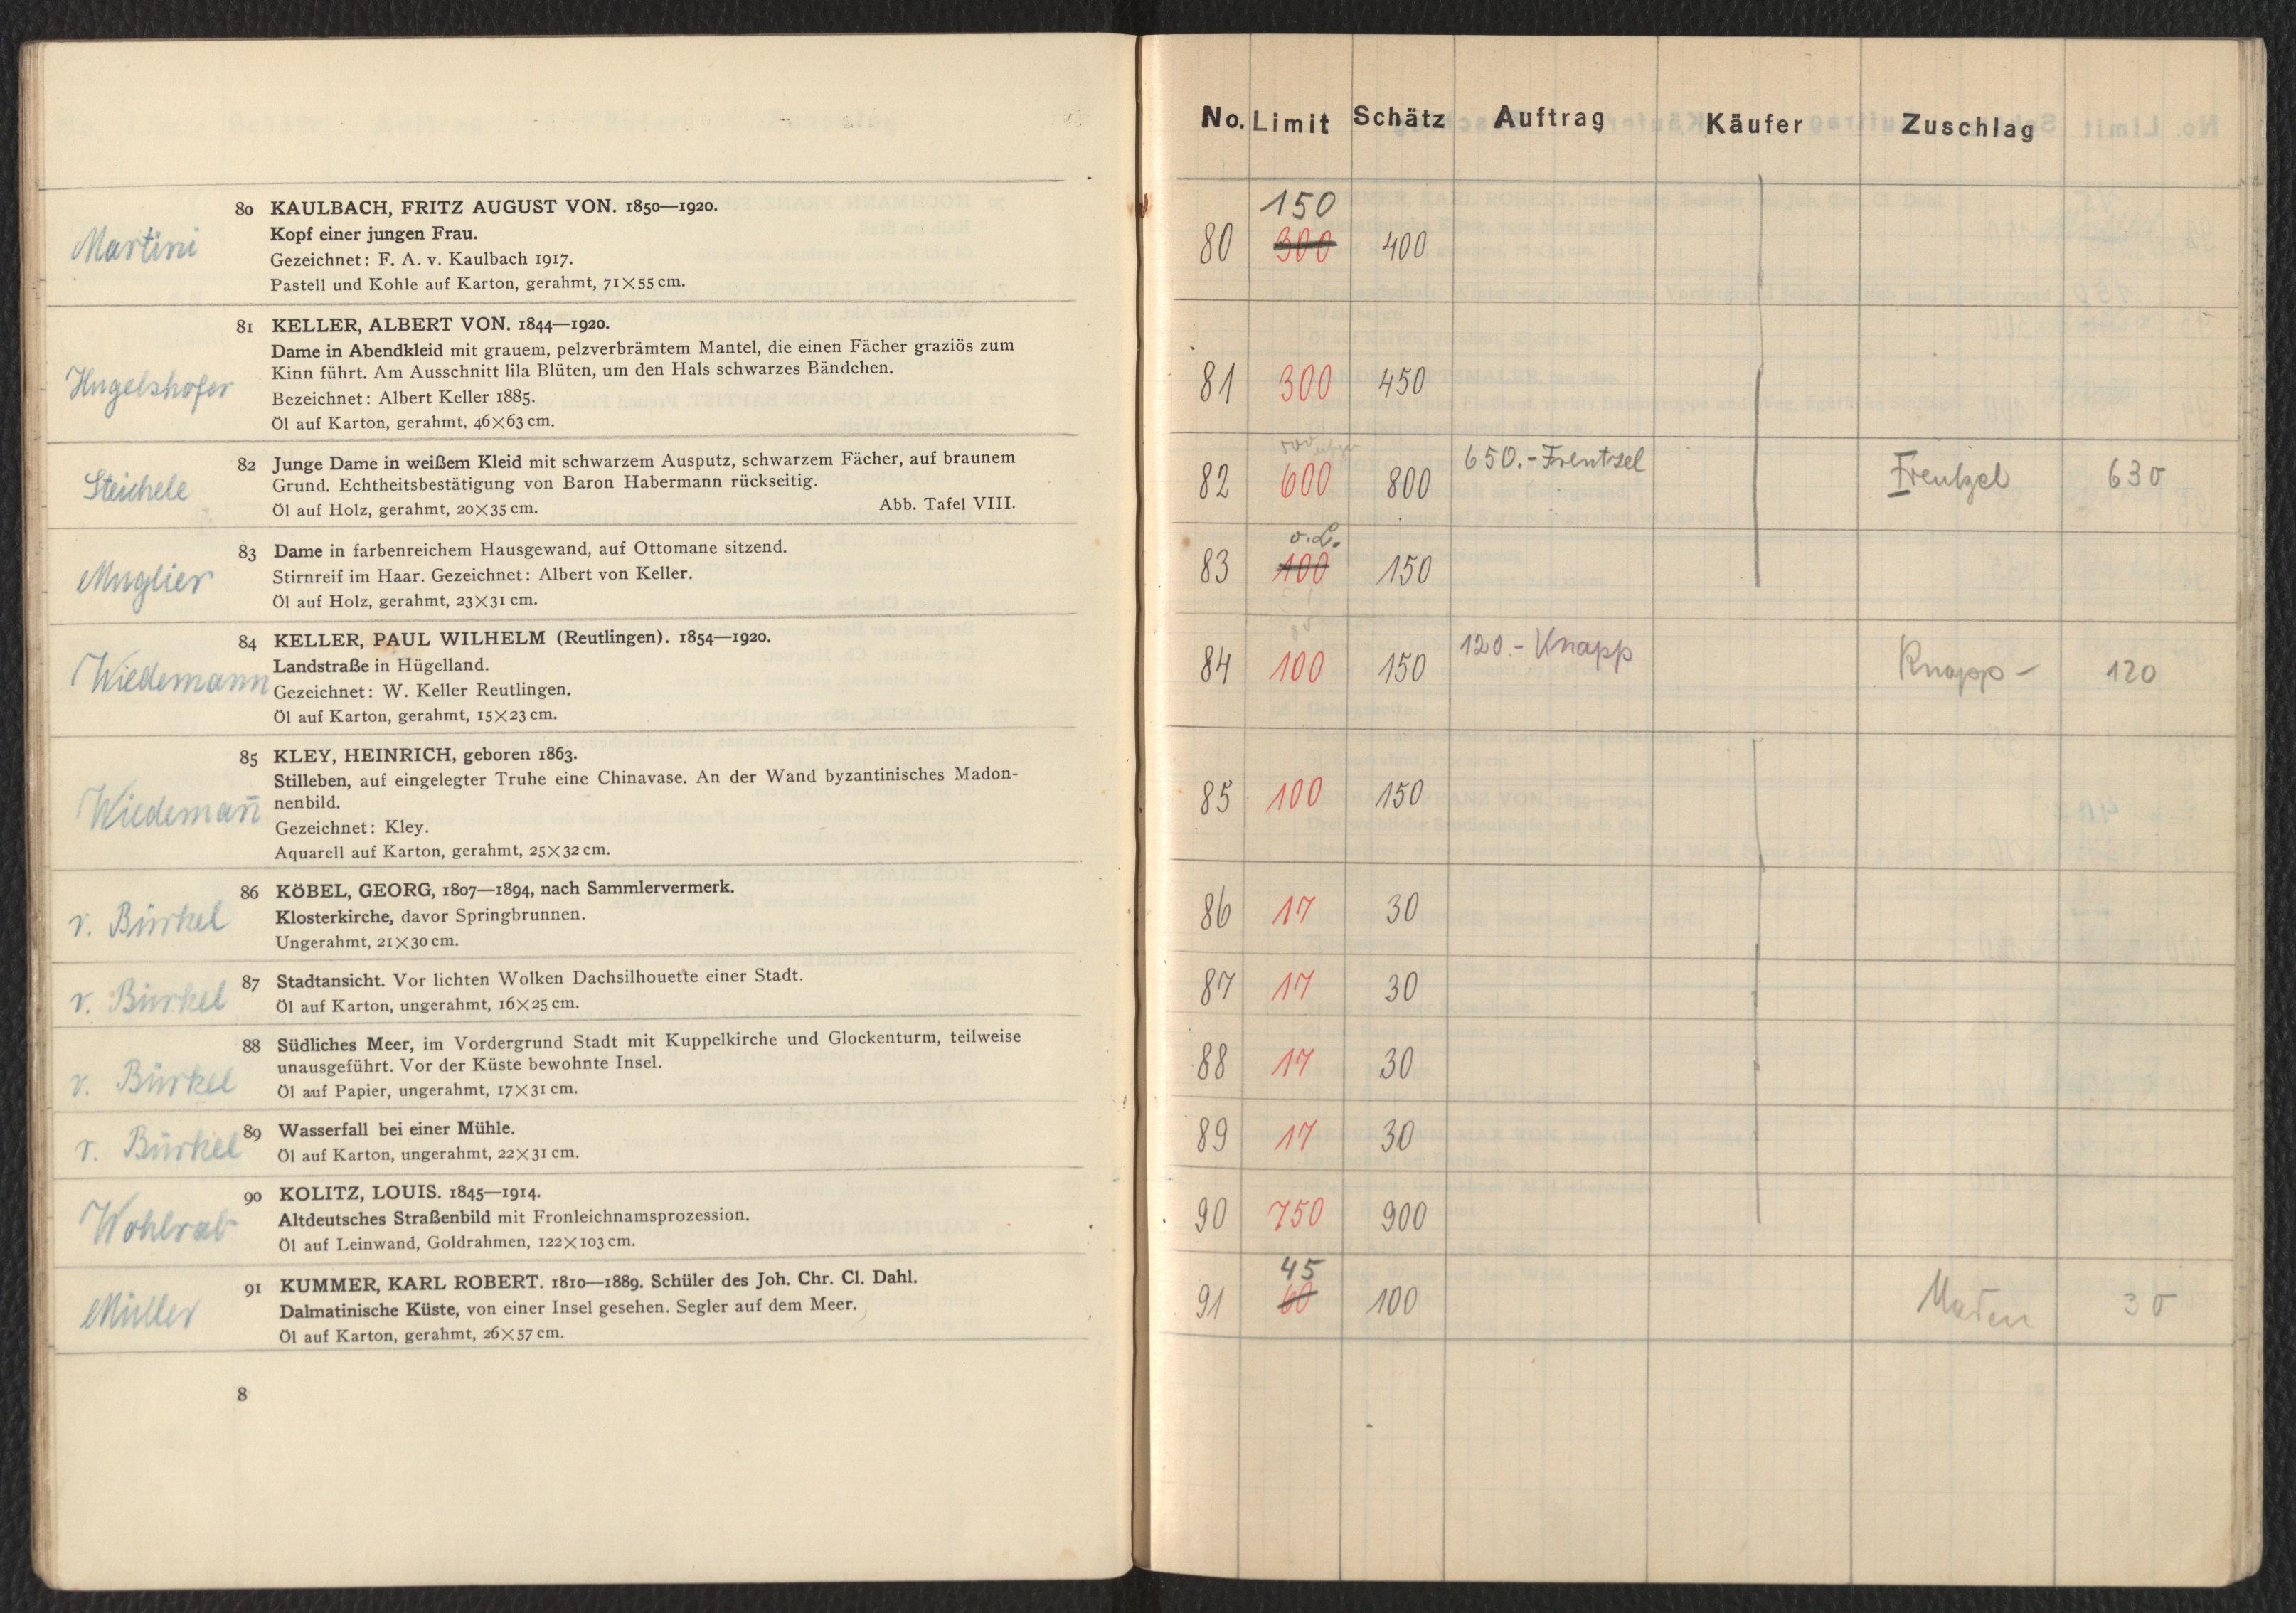 Martini
80 KAULBACH, FRITZ AUGUST VON. 1850—1920.
Kopf einer jungen Frau.
Gezeichnet: F. A. v. Kaulbach 1917.
Pastell und Kohle auf Karton, gerahmt, 71×55 cm.
Hugelshofer
81 KELLER, ALBERT VON. 1844—1920.
Dame in Abendkleid mit grauem, pelzverbrämtem Mantel, die einen Fächer graziös zum
Kinn führt. Am Ausschnitt lila Blüten, um den Hals schwarzes Bändchen.
Bezeichnet: Albert Keller 1885.
Öl auf Karton, gerahmt, 46×63 cm.
Steichele
82 Junge Dame in weißem Kleid mit schwarzem Ausputz, schwarzem Fächer, auf braunem
Grund. Echtheitsbestätigung von Baron Habermann rückseitig.
Öl auf Holz, gerahmt, 20×35 cm. Abb. Tafel VIII.
Muglier
83 Dame in farbenreichem Hausgewand, auf Ottomane sitzend.
Stirnreif im Haar. Gezeichnet: Albert von Keller.
Öl auf Holz, gerahmt, 23×31 cm.
Wiedemann
84 KELLER, PAUL WILHELM (Reutlingen). 1854—1920.
Landstraße in Hügelland.
Gezeichnet: W. Keller Reutlingen.
Öl auf Karton, gerahmt, 15×23 cm.
Wiedemañ
85 KLEY, HEINRICH, geboren 1863.
Stilleben, auf eingelegter Truhe eine Chinavase. An der Wand byzantinisches Madon-
nenbild.
Gezeichnet: Kley.
Aquarell auf Karton, gerahmt, 25×32 cm.
v. Bürkel
86 KÖBEL, GEORG, 1807—1894, nach Sammlervermerk.
Klosterkirche, davor Springbrunnen.
Ungerahmt, 21×30 cm.
v. Bürkel
87 Stadtansicht. Vor lichten Wolken Dachsilhouette einer Stadt.
Öl auf Karton, ungerahmt, 16×25 cm.
v. Bürkel
88 Südliches Meer, im Vordergrund Stadt mit Kuppelkirche und Glockenturm, teilweise
unausgeführt. Vor der Küste bewohnte Insel.
Öl auf Papier, ungerahmt, 17×31 cm.
v. Bürkel
89 Wasserfall bei einer Mühle.
Öl auf Karton, ungerahmt, 22×31 cm.
Wohlrab
90 KOLITZ, LOUIS. 1845—1914.
Altdeutsches Straßenbild mit Fronleichnamsprozession.
Öl auf Leinwand, Goldrahmen, 122×103 cm.
Müller
91 KUMMER, KARL ROBERT. 1810—1889. Schüler des Joh. Chr. Cl. Dahl.
Dalmatinische Küste, von einer Insel gesehen. Segler auf dem Meer.
Öl auf Karton, gerahmt, 26×57 cm.
8
No. Limit Schätz Auftrag Käufer Zuschlag
150
80 300 400
81 300 450
500
82 600 800 650.- Frentzel Frentzel 630
o.L.
83 100 150
84 100 150 120.- Knapp Knapp - 120
85 100 150
86 17 30
87 17 30
88 17 30
89 17 30
90 750 900
45
91 60 100 30